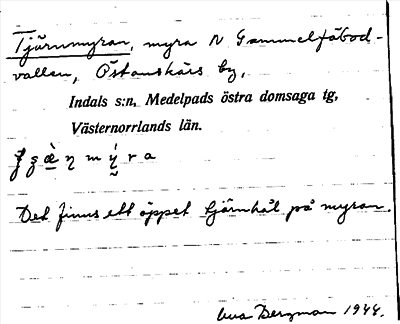 Tjärnmyran, myra N Gammelfäbod-
vallen, Östanskärs by,
Indals s:n, Medelpads östra domsaga tg,
Västernorrlands län.
Det finns ett öppet tjärnhål på myran.
Bergman 1944.